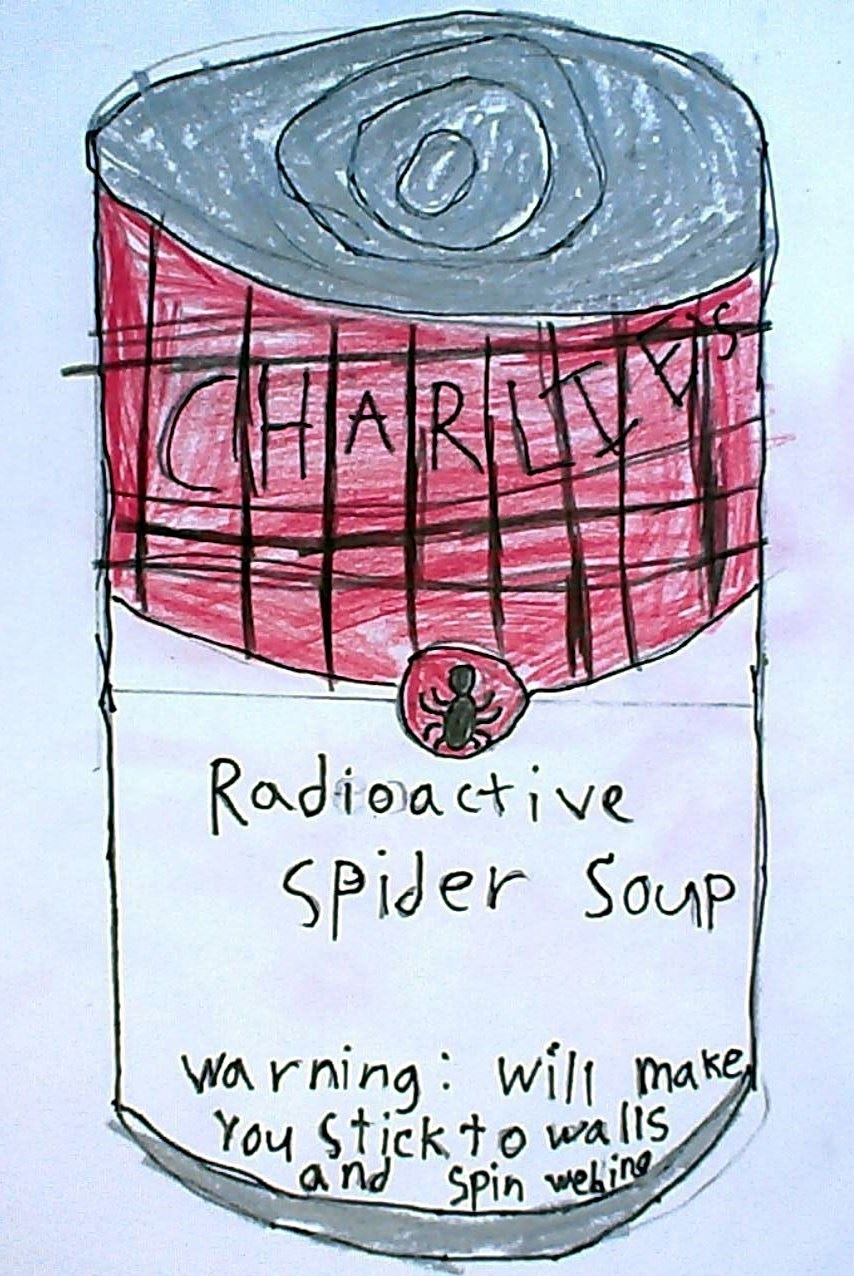 CHARLIE'S
Radioactive
Spider Soup
Warning: will make
You stick to walls
and spin webing